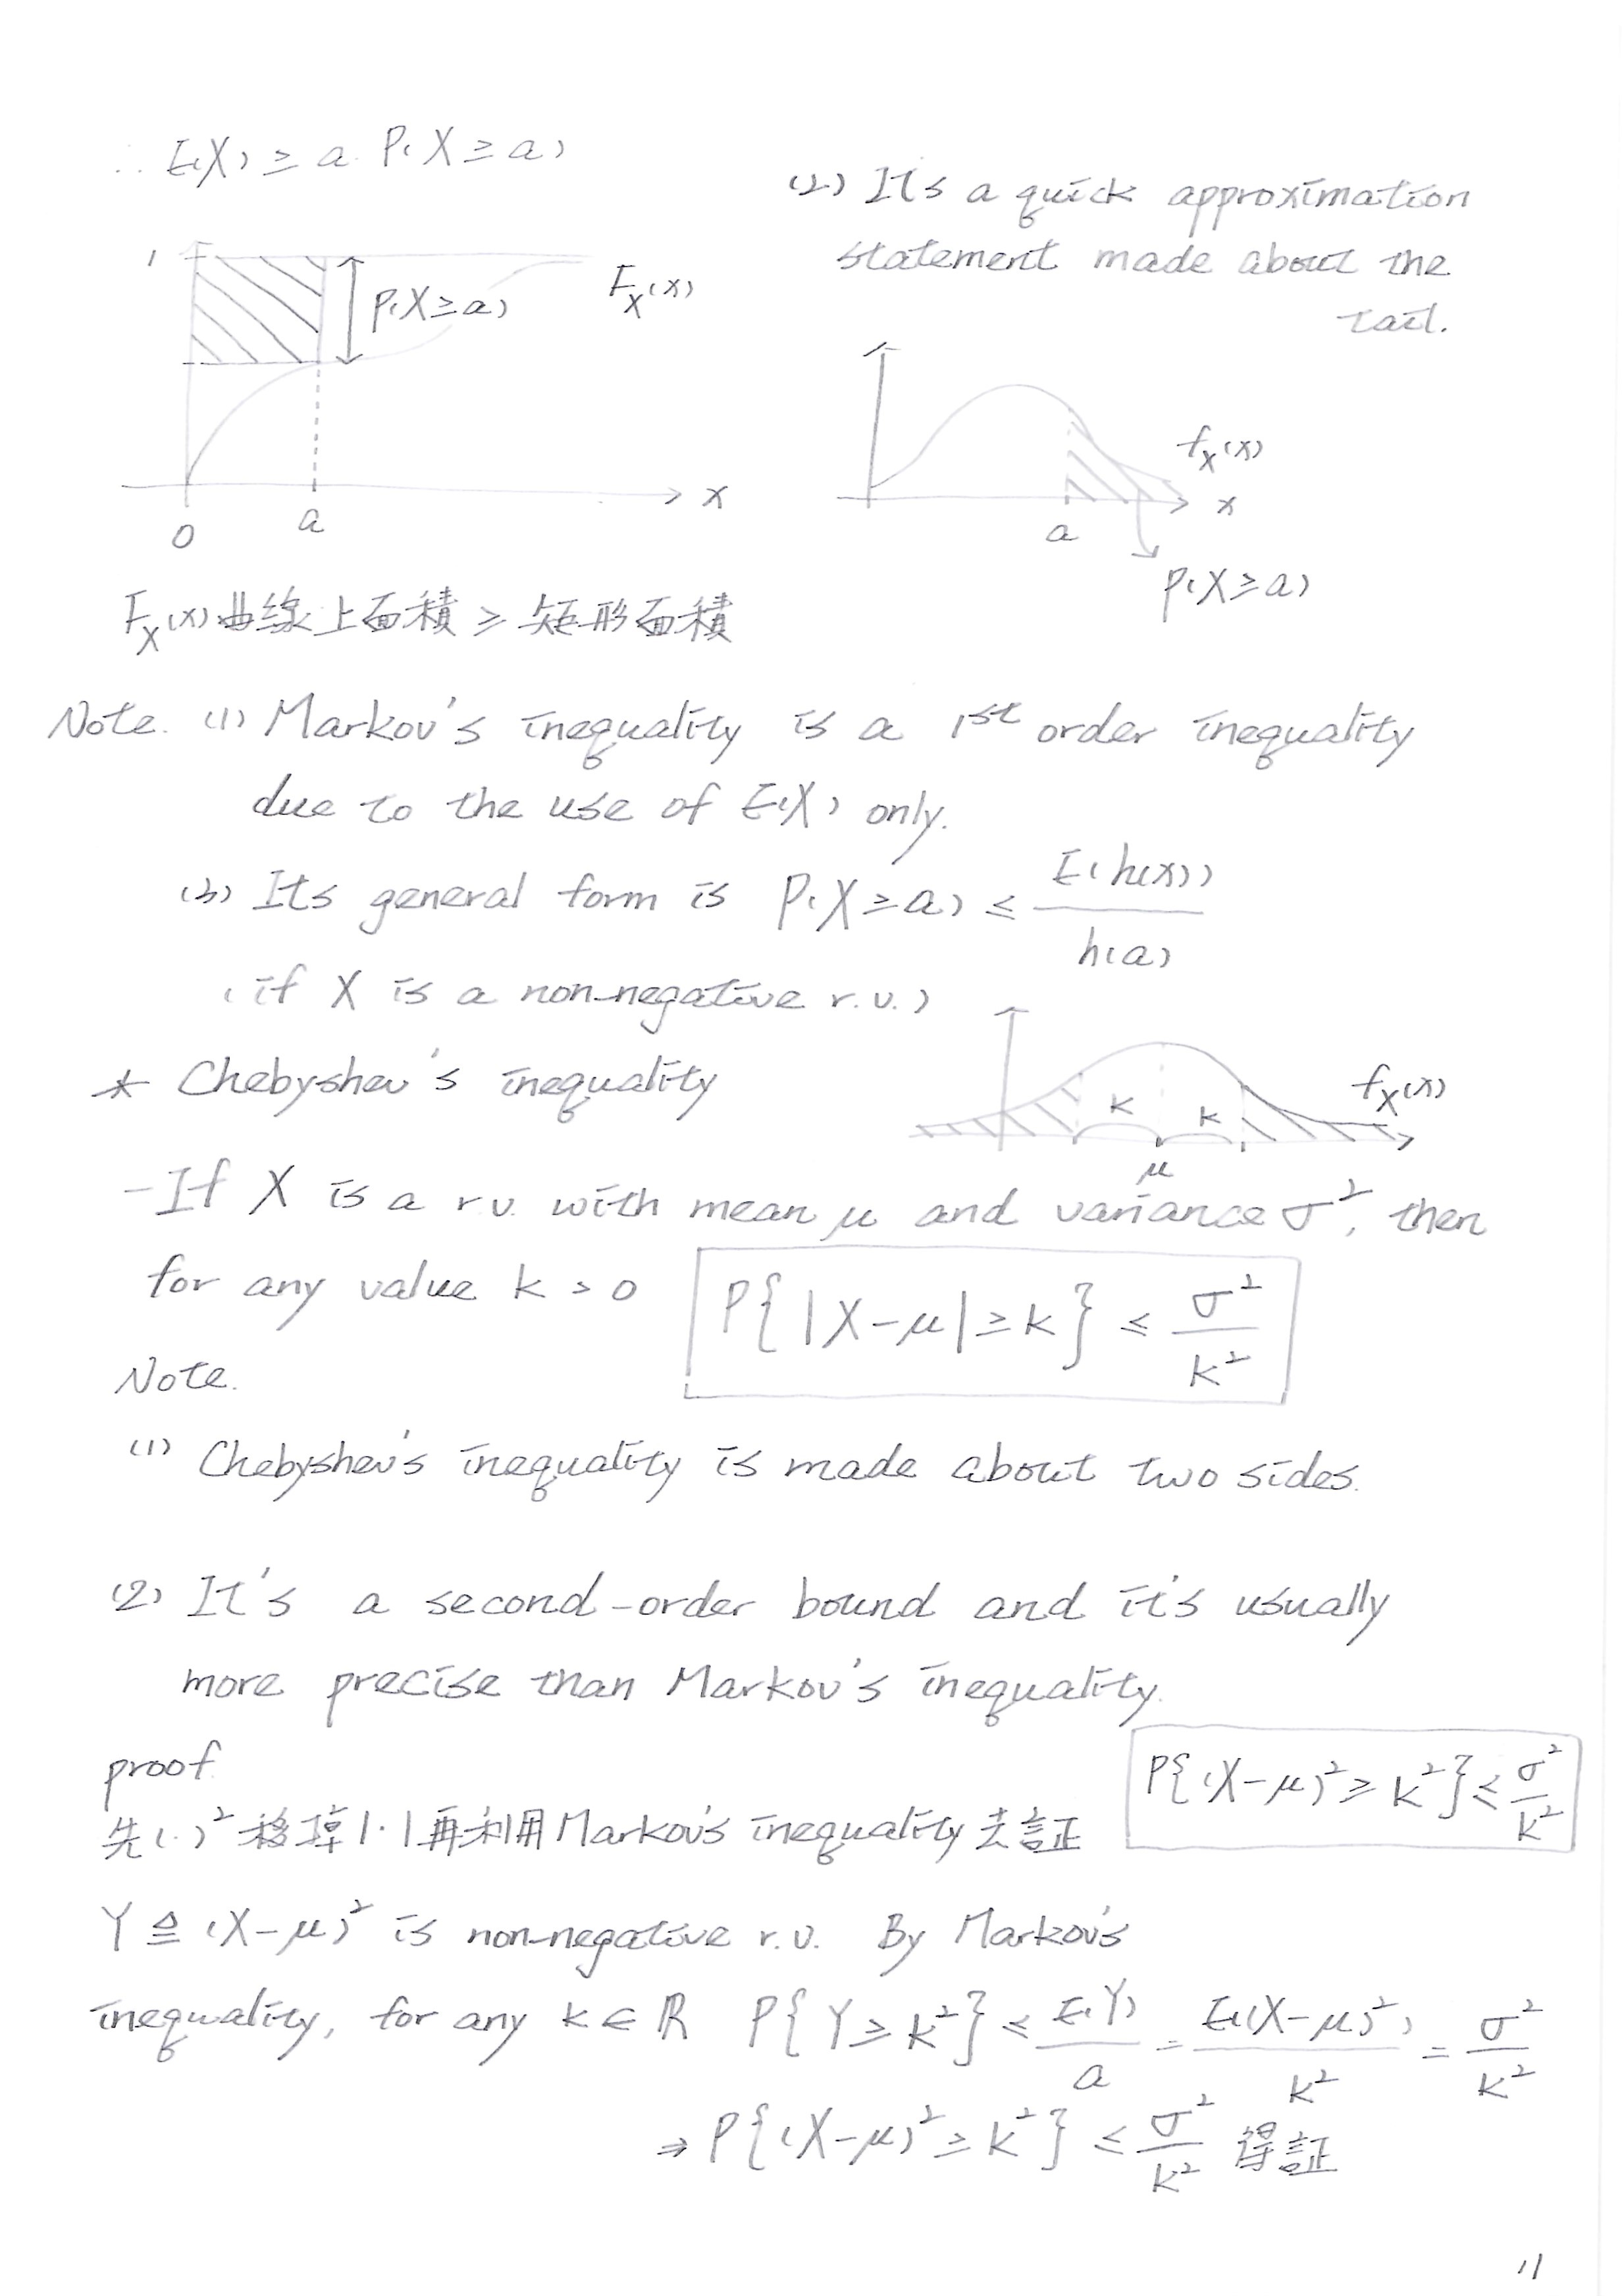 ∴ E(X) ≥ a P(X ≥ a)
1
P(X ≥ a)
F_X(x)
x
0
a
F_X(x)曲線上面積 ≥ 矩形面積
(2) It's a quick approximation
statement made about the
tail.
f_X(x)
x
a
P(X ≥ a)
Note. (1) Markov's inequality is a 1st order inequality
due to the use of E(X) only.
(3) Its general form is P(X ≥ a) ≤ E(h(X)) / h(a)
(if X is a non-negative r.v.)
* Chebyshev's inequality
f_X(x)
k
k
μ
- If X is a r.v. with mean μ and variance σ², then
for any value k > 0 P{|X-μ| ≥ k} ≤ σ²/k²
Note.
(1) Chebyshev's inequality is made about two sides.
(2) It's a second-order bound and it's usually
more precise than Markov's inequality.
proof.
先(·)²移掉|·|再利用Markov's inequality去証
P{(X-μ)² ≥ k²} ≤ σ²/k²
Y ≜ (X-μ)² is non-negative r.v. By Markov's
inequality, for any k ∈ ℝ P{Y ≥ k²} ≤ E(Y)/a = E((X-μ)²)/k² = σ²/k²
⇒ P{(X-μ)² ≥ k²} ≤ σ²/k² 得証
11